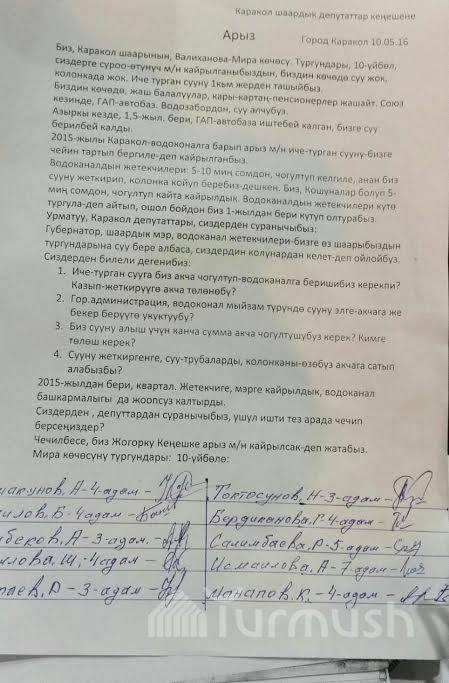 Каракол шаардык депутаттар кеңешене
Арыз
Город Каракол 10.05.16
Биз, Каракол шаарынын, Валиханова-Мира көчөсү. Тургундары, 10-үйбөл,
сиздерге суроо-өтүнүч м/н кайрылганыбыздын, биздин көчөдө суу жок,
колонкада жок. Иче турган сууну 1км жерден ташыйбыз.
Биздин көчөдө, жаш балалуулар, кары-картаң-пенсионерлер жашайт. Союз
кезинде, ГАП-автобаз. Водозабордон, суу алчубуз.
Азыркы кезде, 1,5-жыл. бери, ГАП-автобаза иштебей калган, бизге суу
берилбей калды.
2015-жылы Каракол-водоконалга барып арыз м/н иче-турган сууну-бизге
чейин тартып бергиле-деп кайрылганбыз.
Водоканалдын жетекчилери: 5-10 миң сомдон, чогултуп келгиле, анан биз
сууну жеткирип, колонка койуп беребиз-дешкен. Биз, Кошуналар болуп 5-
миң сомдон, чогултуп кайта кайрылдык. Водоканалдын жетекчилери күтө
тургула-деп айтып, ошол бойдон биз 1-жылдан бери күтүп олтурабыз.
Урматуу, Каракол депутаттары, сиздерден суранычыбыз:
Губернатор, шаардык мэр, водоканал жетекчилери-бизге өз шаарыбыздын
тургундарына суу бере албаса, сиздирдин колунардан келет-деп ойлойбуз.
Сиздерден билели дегенибиз:
1. Иче-турган сууга биз акча чогултуп-водоканалга беришибиз керекпи?
Казып-жеткирүүгө акча төлөнөбү?
2. Гор.администрация, водоконал мыйзам түрүндө сууну элге-акчага же
бекер берүүгө укуктуубу?
3. Биз сууну алыш үчүн канча сумма акча чогултушубуз керек? Кимге
төлөш керек?
4. Сууну жеткиргенге, суу-трубаларды, колонканы-өзөбүз акчага сатып
алабызбы?
2015-жылдан бери, квартал. Жетекчиге, мэрге кайрылдык, водоканал
башкармалыгы да жоопсуз калтырды.
Сиздерден , депуттардан суранычыбыз, ушул ишти тез арада чечип
берсеңиздер?
Чечилбесе, биз Жогорку Кеңешке арыз м/н кайрылсак-деп жатабыз.
Мира көчөсүнү тургундары: 10-үйбөлө:
макунов, А-4-адам-
Токтосунов, Н-3-адам-
илов, Б-4-адам-
Бердиканова, Г-4-адам-
беков, А-3-адам-
Салимбаева, Р-5-адам-
илова, Ш,-4-адам-
Исмаилова, А-7-адам-
паев, Д-3-адам-
Манапов, К.-4-адам-
Turmush